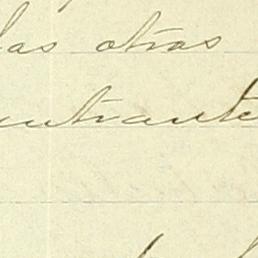 las otras
entrante